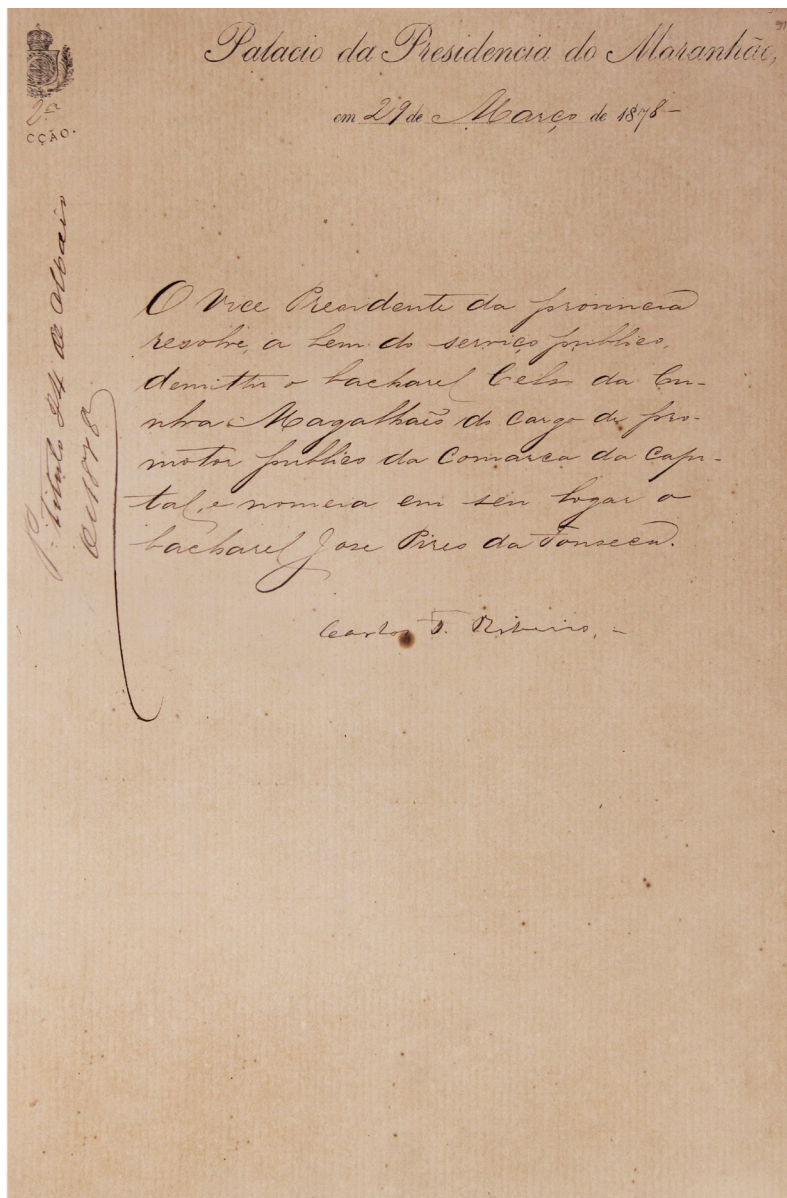 Palacio da Presidencia do Maranhão,
em 29 de Março de 1878
2ª
CÇÃO.
O Vice Presidente da provincia
resolve, a bem do serviço publico,
demittir o bacharel Celso da Cu-
nha Magalhães do cargo de pro-
motor publico da Comarca da Capi-
tal, e nomeia em seu logar o
bacharel Jose Pires da Fonseca.
Carlos F. Ribeiro.
Titulo 24 de Maio
de 1878